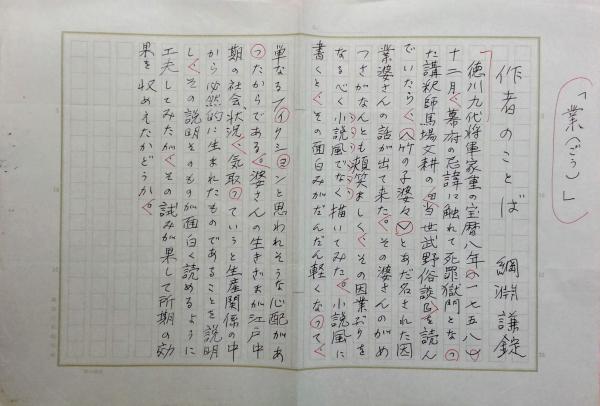 「業（ごう）」
作者のことば　綱淵謙錠
徳川九代将軍家重の宝暦八年（一七五八）
十二月、幕府の忌諱に触れて死罪獄門となっ
た講釈師馬場文耕の『当世武野俗談』を読ん
でいたら、〝竹の子婆々〟とあだ名された因
業婆さんの話が出て来た。その婆さんのがめ
つさがなんとも頬笑ましく、その因業ぶりを
なるべく小説風でなく描いてみた。小説風に
書くと、その面白みがだんだん軽くなって、
単なるフィクションと思われそうな心配があ
ったからである。婆さんの生きざまが江戸中
期の社会状況、気取っていうと生産関係の中
から必然的に生まれたものであることを説明
し、その説明そのものが面白く読めるように
工夫してみたが、その試みが果して所期の効
果を収めえたかどうか。